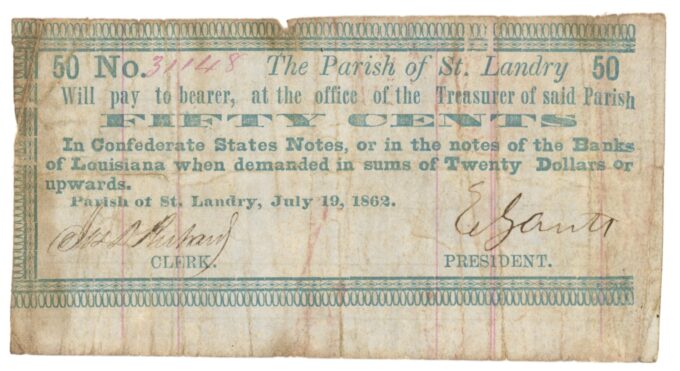 50 No. 31148 The Parish of St. Landry 50
Will pay to bearer, at the office of the Treasurer of said Parish
FIFTY CENTS
In Confederate States Notes, or in the notes of the Banks
of Louisiana when demanded in sums of Twenty Dollars or
upwards.
Parish of St. Landry, July 19, 1862.
CLERK. PRESIDENT.